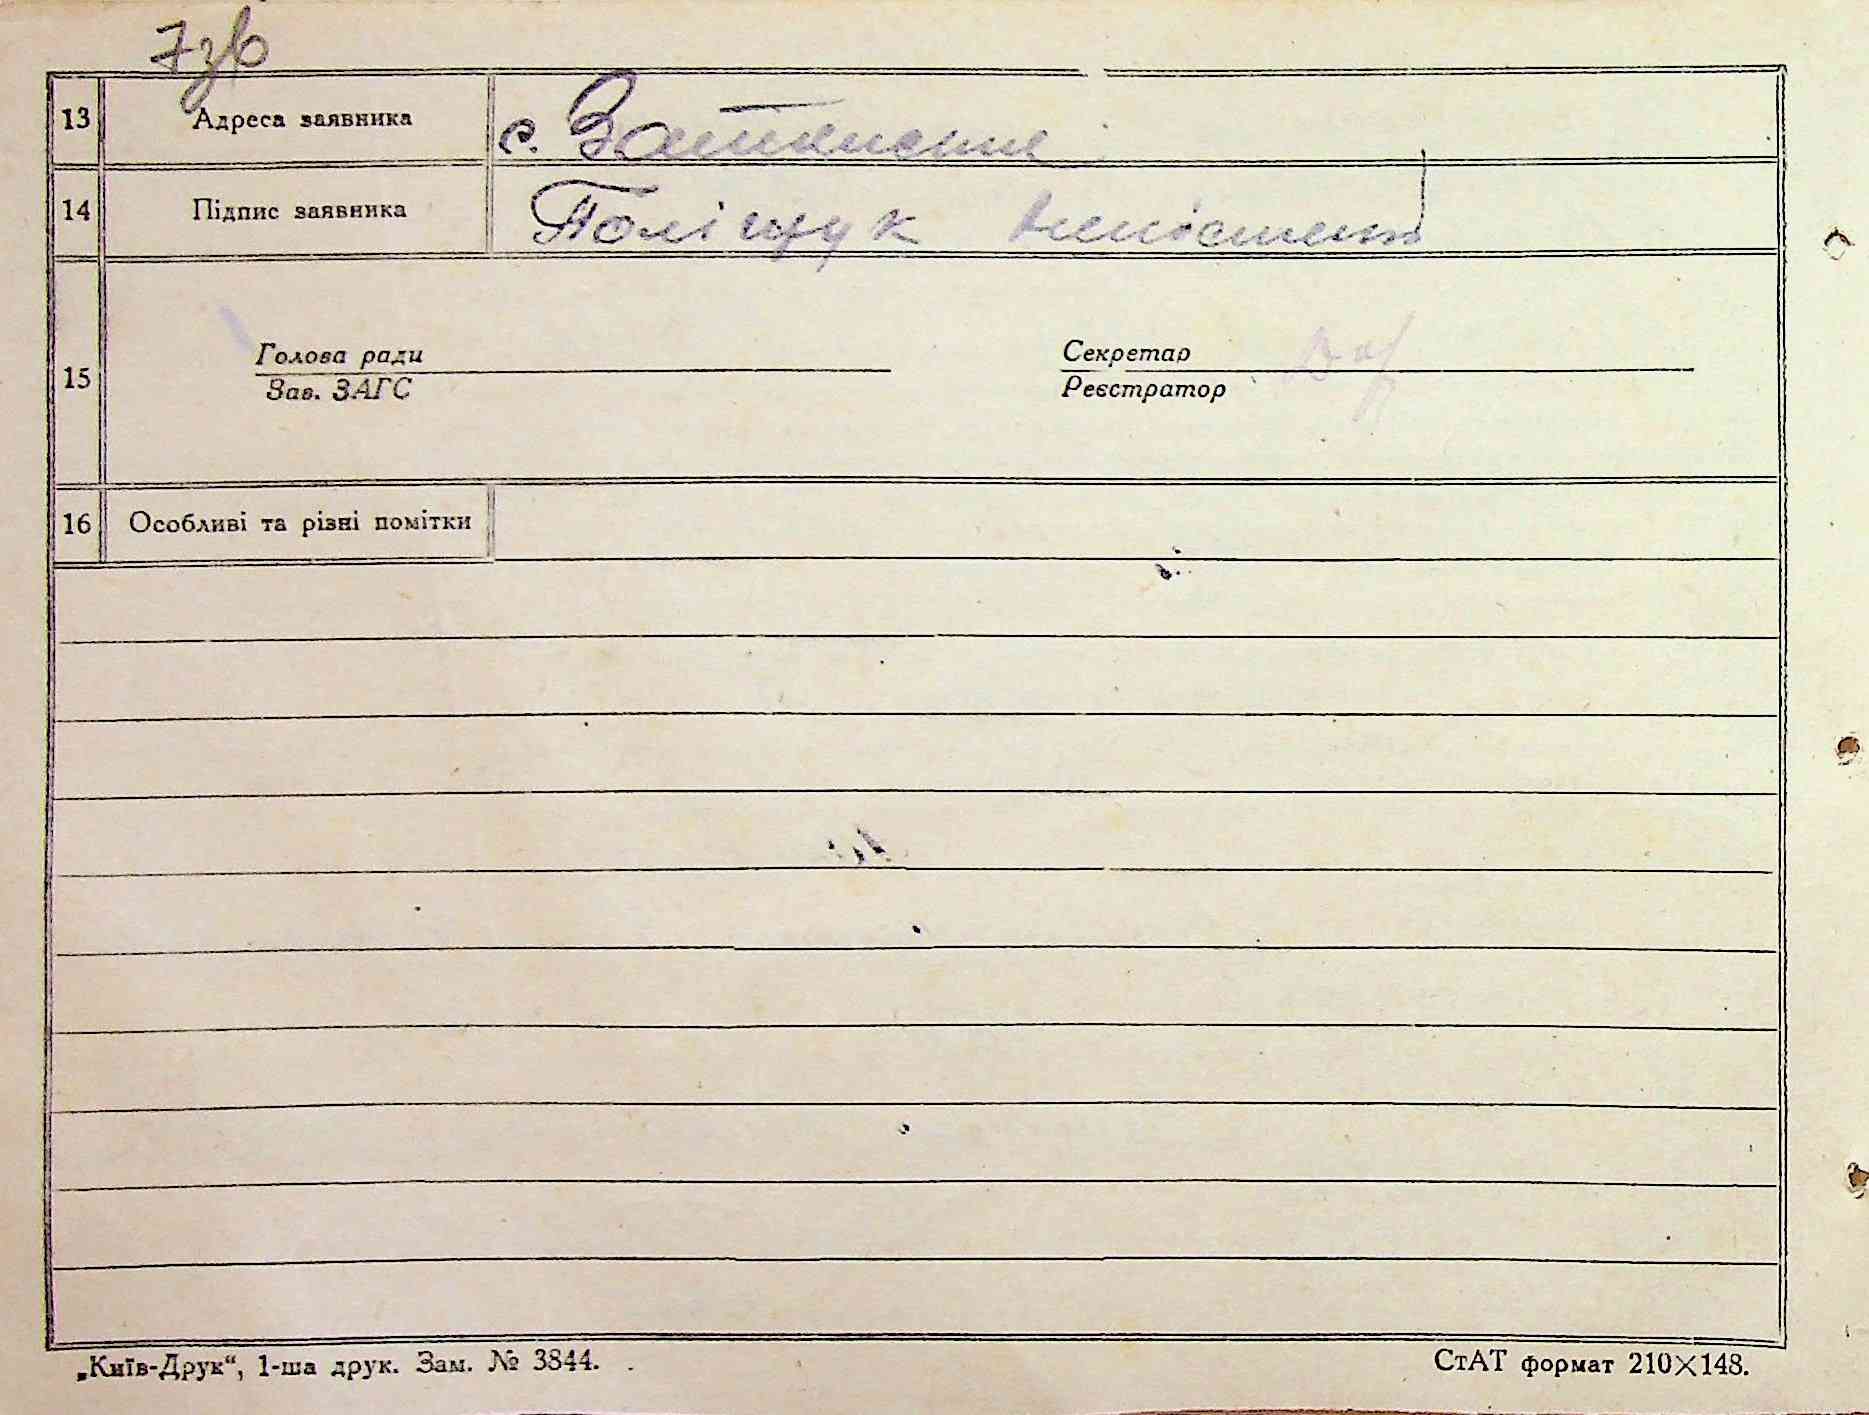 7зв
13 Адреса заявника с.
14 Підпис заявника Поліщук
15 Голова ради Секретар
Зав. ЗАГС Реєстратор
16 Особливі та різні помітки
„Київ-Друк“, 1-ша друк. Зам. № 3844. СтАТ формат 210×148.